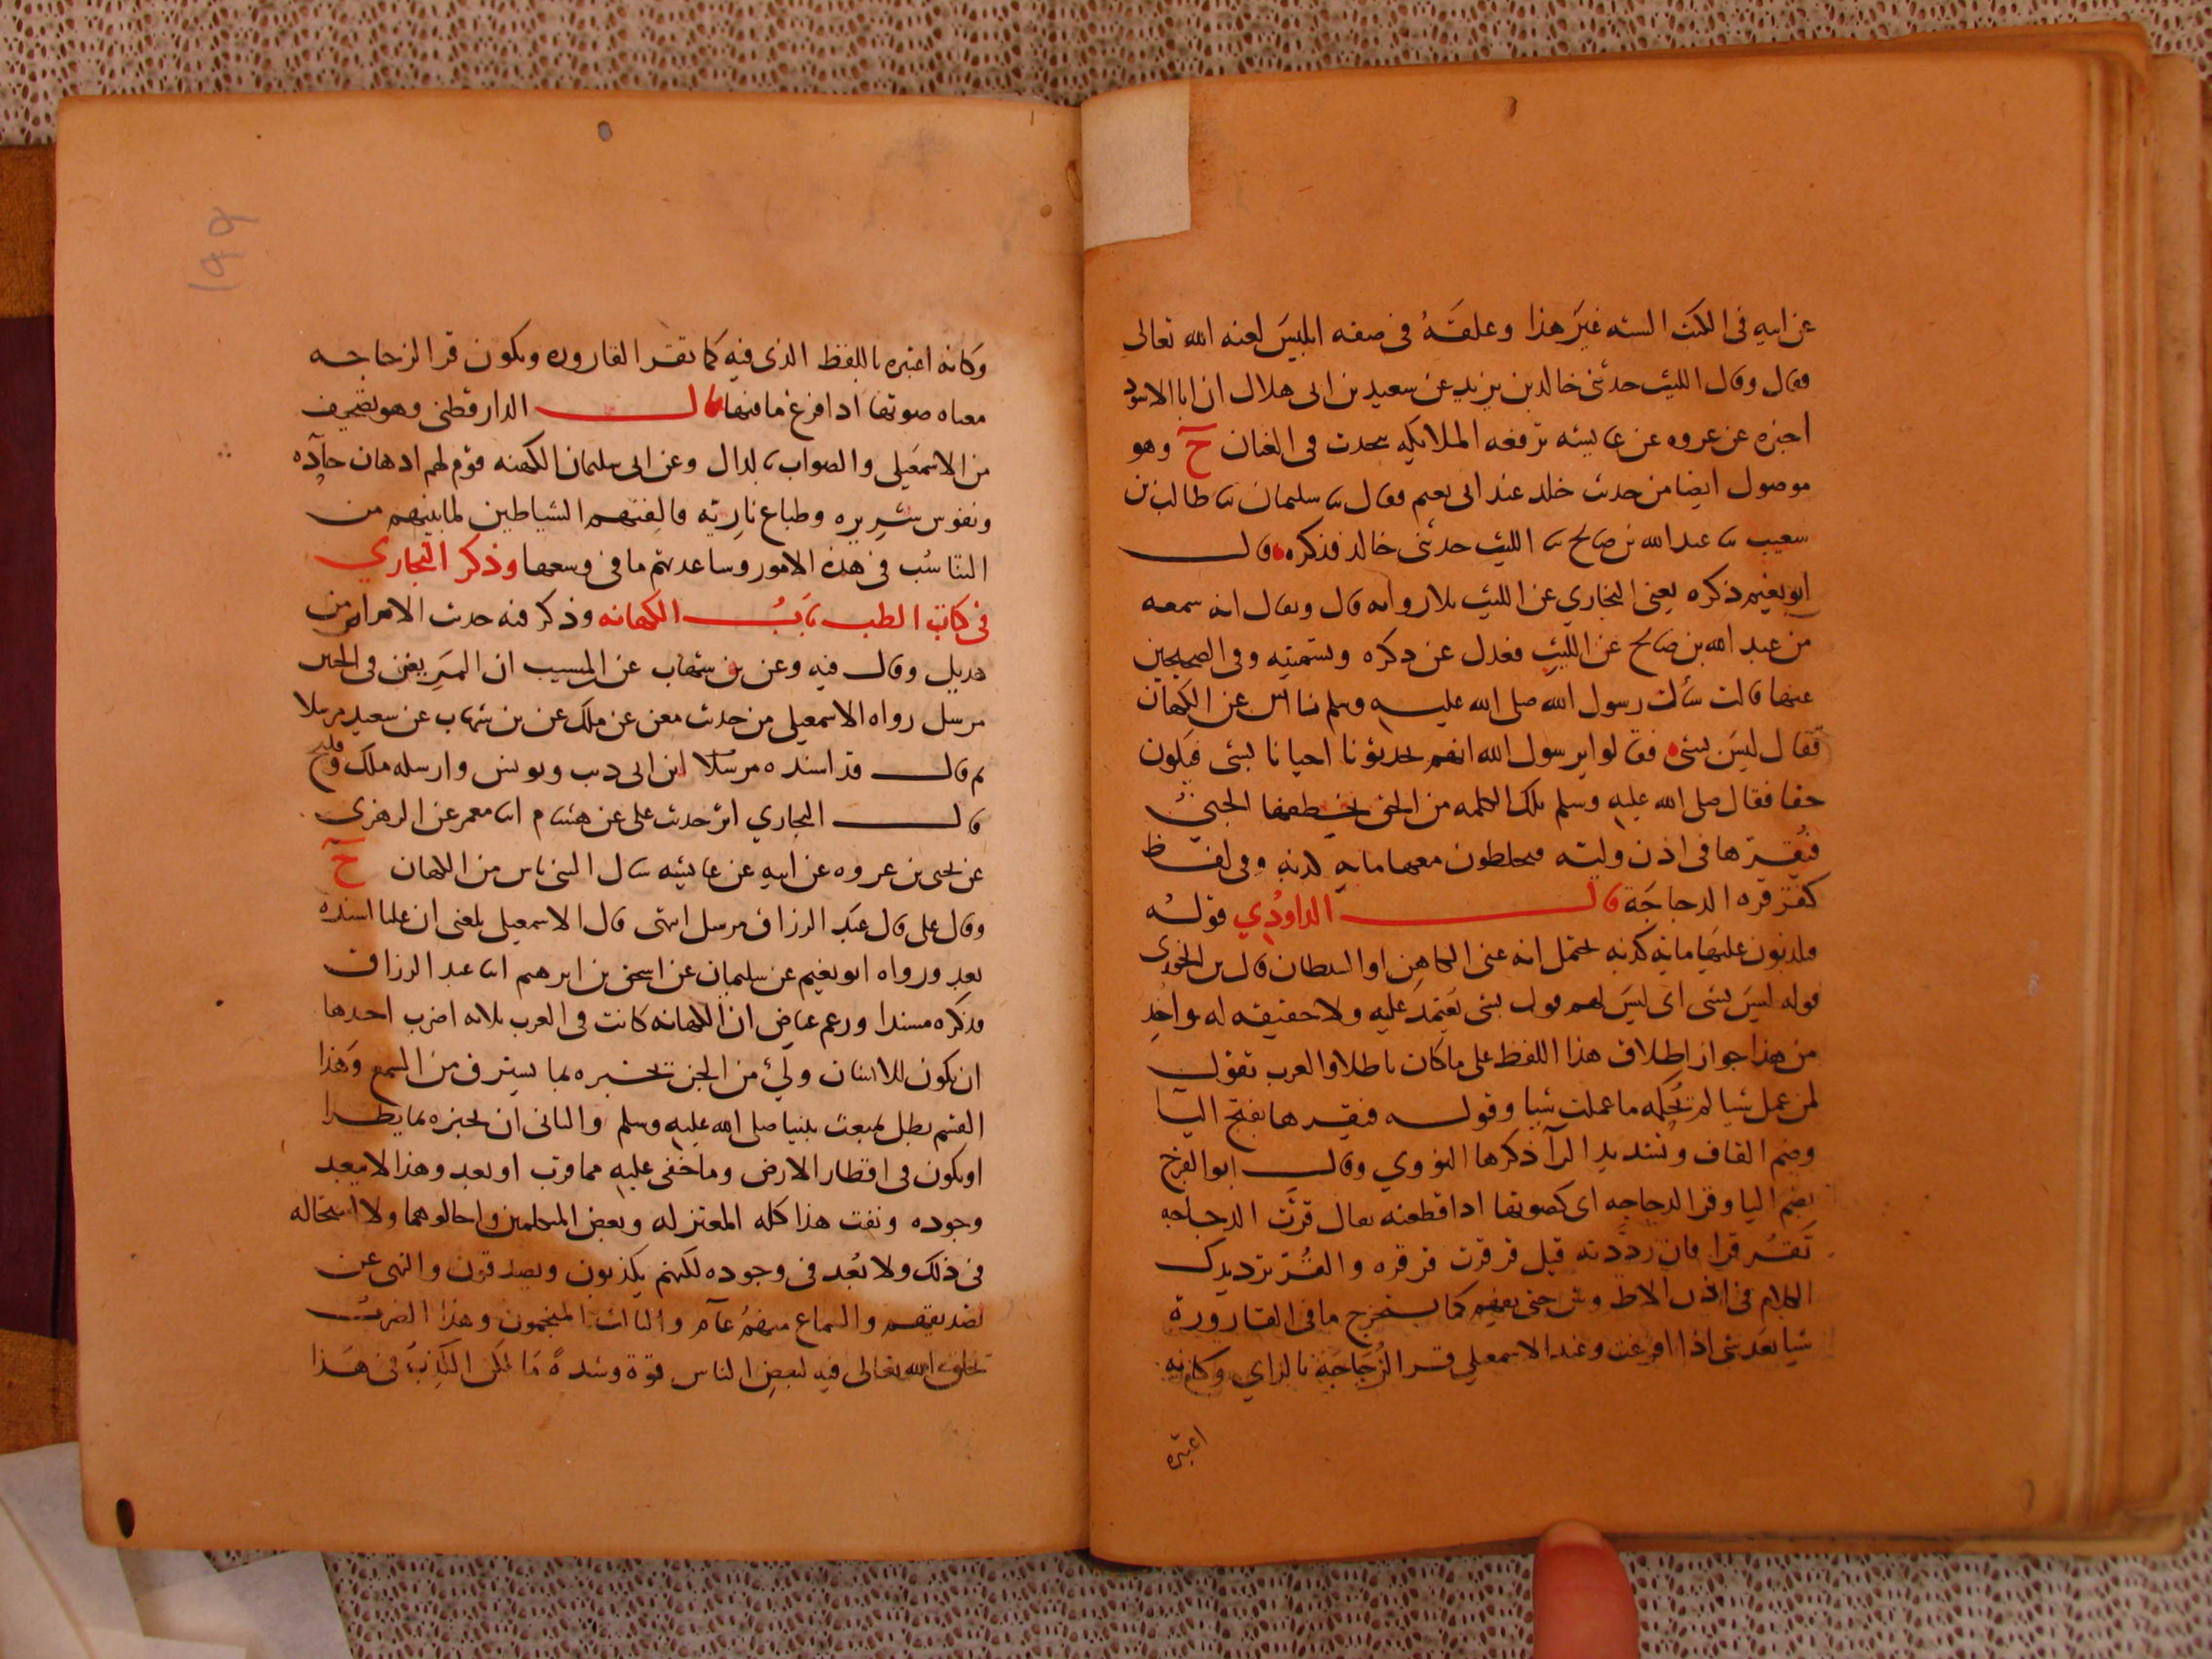 عن ابيه فى الكتب السته غير هذا وعلقه فى صفه ابليس لعنه الله تعالى
فقال وقال الليث حدثنى خالد بن يزيد عن سعيد بن ابى هلال ان ابا الاسود
اخبره عن عروه عن عايشه ترفعه الملايكه تتحدث فى العنان ح وهو
موصول ايضا من حديث خالد عند ابى نعيم فقال ثنا سليمان ثنا طالب بن
شعيب ثنا عبد الله بن صالح ثنا الليث حدثنى خالد فذكره قال
ابو نعيم ذكره يعنى البخاري عن الليث بلا روايه قال ويقال انه سمعه
من عبد الله بن صالح عن الليث فعدل عن ذكره وتسميته وفى الصحيحين
عنها قالت سألت رسول الله صلى الله عليه وسلم ناس عن الكهان
فقال ليس بشى فقالوا يرسول الله انهم يحدثونا احيانا بشى فيكون
حقا فقال صلى الله عليه وسلم تلك الكلمه من الحق يخطفها الجني
فيقرها فى اذن وليه فيخلطون معها مايه كذبه وفى لفظ
كقرقره الدجاجة قال الداوُدي قوله
فيكذبون عليها مايه كذبه يحتمل انه عنى الكاهن او الشيطان قال بن الجوزى
قوله ليس بشى اى ليس لهم قول بشى يعتمد عليه ولا حقيقه له واخذ
من هذا جواز اطلاق هذا اللفظ على ما كان باطلا والعرب تقول
لمن عمل شيا لم يحكمه ما عملت شيا وقوله فيقرها بفتح اليا
وضم القاف وتشديد الرآ ذكرها النووي وقال ابو الفرج
بضم اليا وقر الدجاجه اى كصوتها اذا قطعته يقال قرت الدجاجه
تقر قرا فان رددته قيل قرقرت قرقره والقر ترديدك
الكلام فى اذن حتى يفهم كما يستخرج ما فى القارورة
شيا بعد شى اذا افرغت وعند الاسمعيلي قر الزُجَاجَة بالزاي وكانه
اعتبره
١٩٩
وكانه اعتبره باللفظ الذى فيه كما تقر القاروره ويكون قر الزجاجه
معناه صوتها اذا افرغ ما فيها قال الدارقطنى وهو تصحيف
من الاسمعيلى والصواب بالدال وعن ابى سليمان الكهنه قوم لهم اذهان حآده
ونفوس شريره وطباع ناريه فالفتهم الشياطين لما بينهم من
التناسُب فى هذه الامور وساعدتهم ما فى وسعها وذكر البخاري
فى كتاب الطب بَابُ الكهانه وذكر فيه حديث الامراتين من
هذيل وقال فيه وعن بن شهاب عن المسيب ان النبى فى الجنين
مرسل رواه الاسمعيلى من حديث معن عن ملك عن بن شهاب عن سعيد مرسلا
ثم قال قد اسنده مرسلا ابن ابى ذيب ويونس وارسله ملك وفليح
قال البخاري اثر حديث على عن هشام انا معمر عن الزهرى
عن يحيى بن عروه عن ابيه عن عايشه سال النبى ناس من الكهان ح
وقال على قال عبد الرزاق مرسل انتهى قال الاسمعيلى بلغنى ان عليا اسنده
بعد ورواه ابو نعيم عن سليمان عن اسحق بن ابرهيم انا عبد الرزاق
فذكره مسندا وزعم عياض ان الكهانه كانت فى العرب ثلاثه اضرب احدها
ان يكون للانسان وليٌ من الجن يخبره بما يسترق من السمع وهذا
القسم بطل بمبعث نبينا صلى الله عليه وسلم والثانى ان يخبره بما يطرا
او يكون فى اقطار الارض وما خفى عليه مما قرب او بعد وهذا لا يبعد
وجوده ونفت هذا كله المعتزله وبعض المتكلمين واحالوهما ولا استحاله
فى ذلك ولا بُعد فى وجوده لكنهم يكذبون ويصدقون والنهى عن
تصديقهم والسماع منهم عآم والثالث المنجمون وهذا الضرب
يخلق الله تعالى فيه لبعض الناس قوة وشدةً مَا لكن الكذب فى هذا